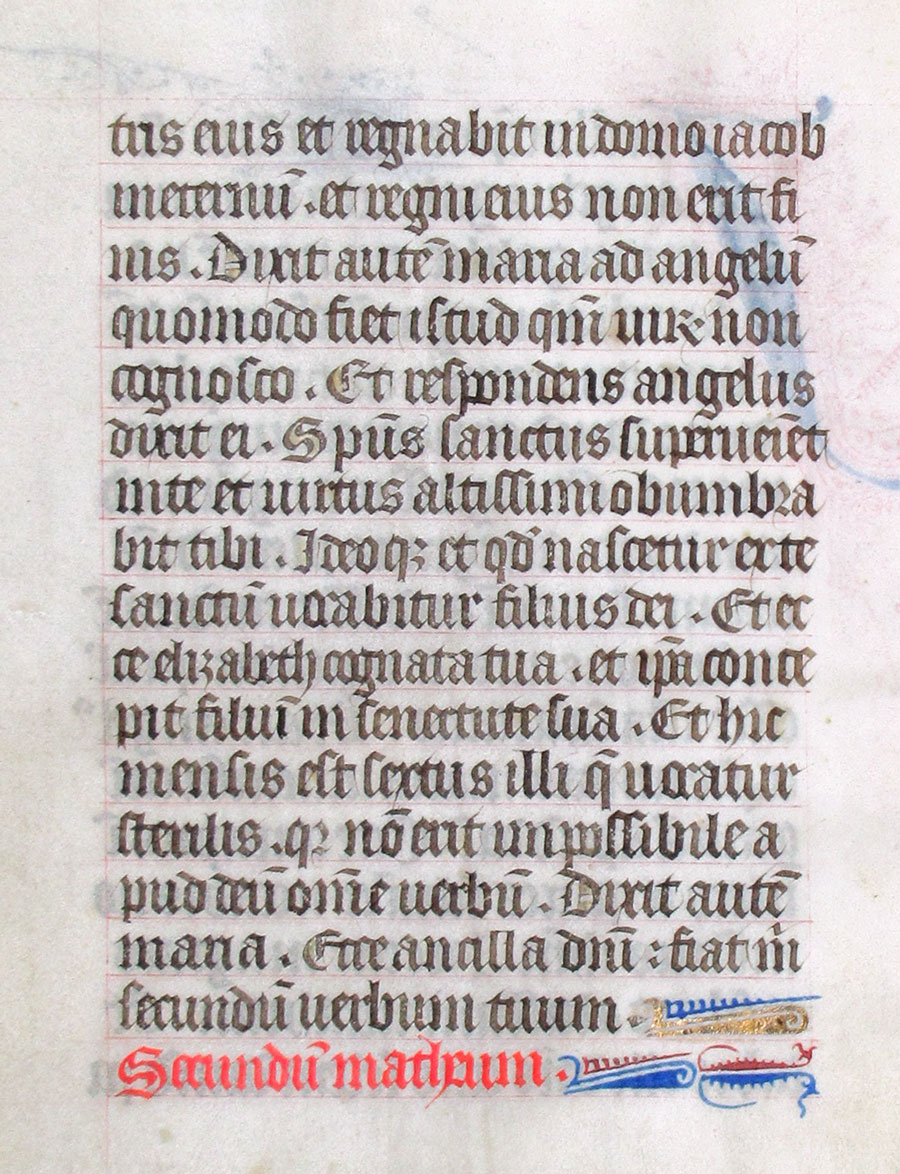 tris eius et regnabit in domo iacob
in eternū . et regni eius non erit fi
nis . Dixit autē maria ad angelū
quomodo fiet istud qm̄ uirum non
cognosco . Et respondens angelus
dixit ei . Sp̄us sanctus superueniet
in te et uirtus altissimi obumbra
bit tibi . Ideoqꝫ et qd̄ nascetur ex te
sanctū uocabitur filius dei . Et ec
ce elizabeth cognata tua . et ip̄a conce
pit filiū in senectute sua . Et hic
mensis est sextus illi q̄ uocatur
sterilis . qꝫ nō erit impossibile a
pud deū om̄e uerbū . Dixit autē
maria . Ecce ancilla dn̄i : fiat m̄
secundū uerbum tuum .
Secundū matheum .